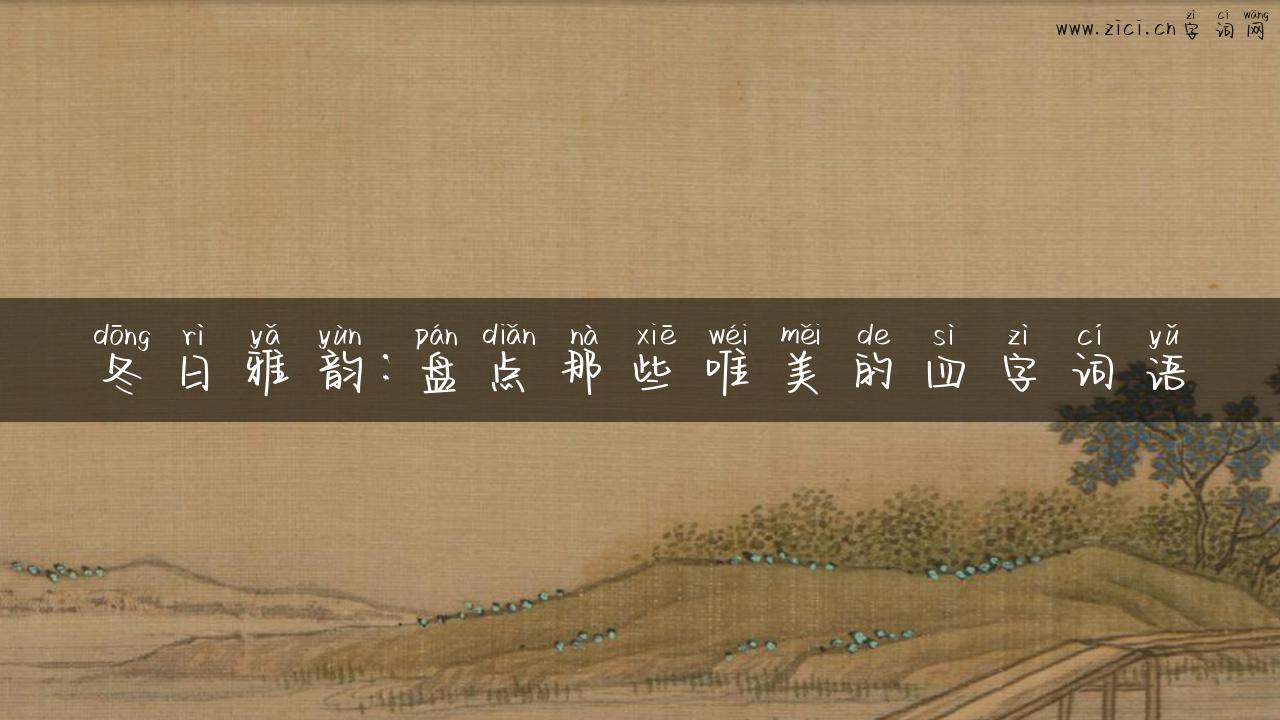 zì cí wǎng
www.zici.cn字词网
dōng rì yǎ yùn pán diǎn nà xiē wéi měi de sì zì cí yǔ
冬日雅韵:盘点那些唯美的四字词语